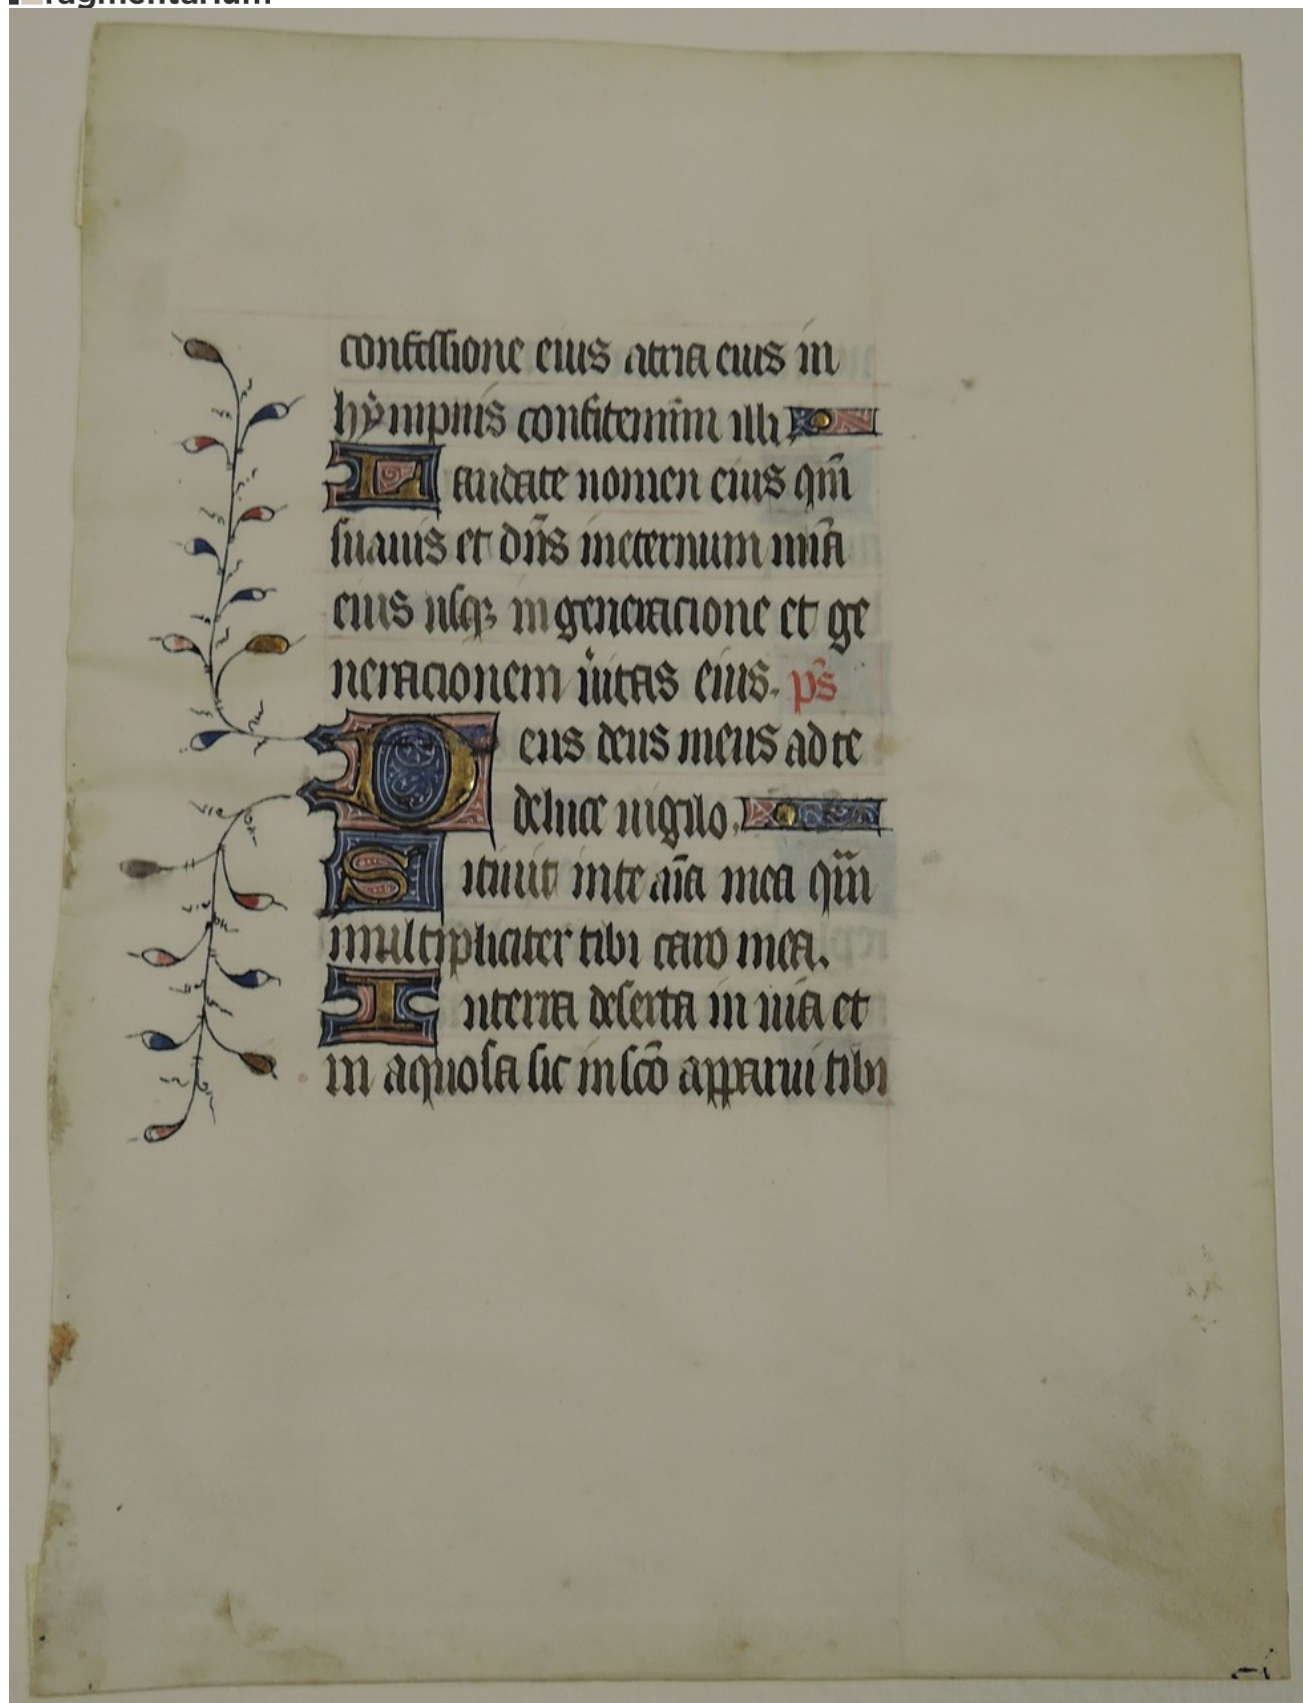 fragmentarium
confessione eius atria eius in
hẏmpnis confitemīm illi
Laudate nomen eius qm̄
suauis et dn̄s ineternum mīa
eius usqꝫ in generacione et ge
neracionem ũitas eius. ps̄
Deus deus meus ad te
deluce uigilo.
Sitiuit inte aīa mea qm̄
multipliciter tibi caro mea.
Interra deserta in uia et
in aquosa sic insc̄o apparui tibi